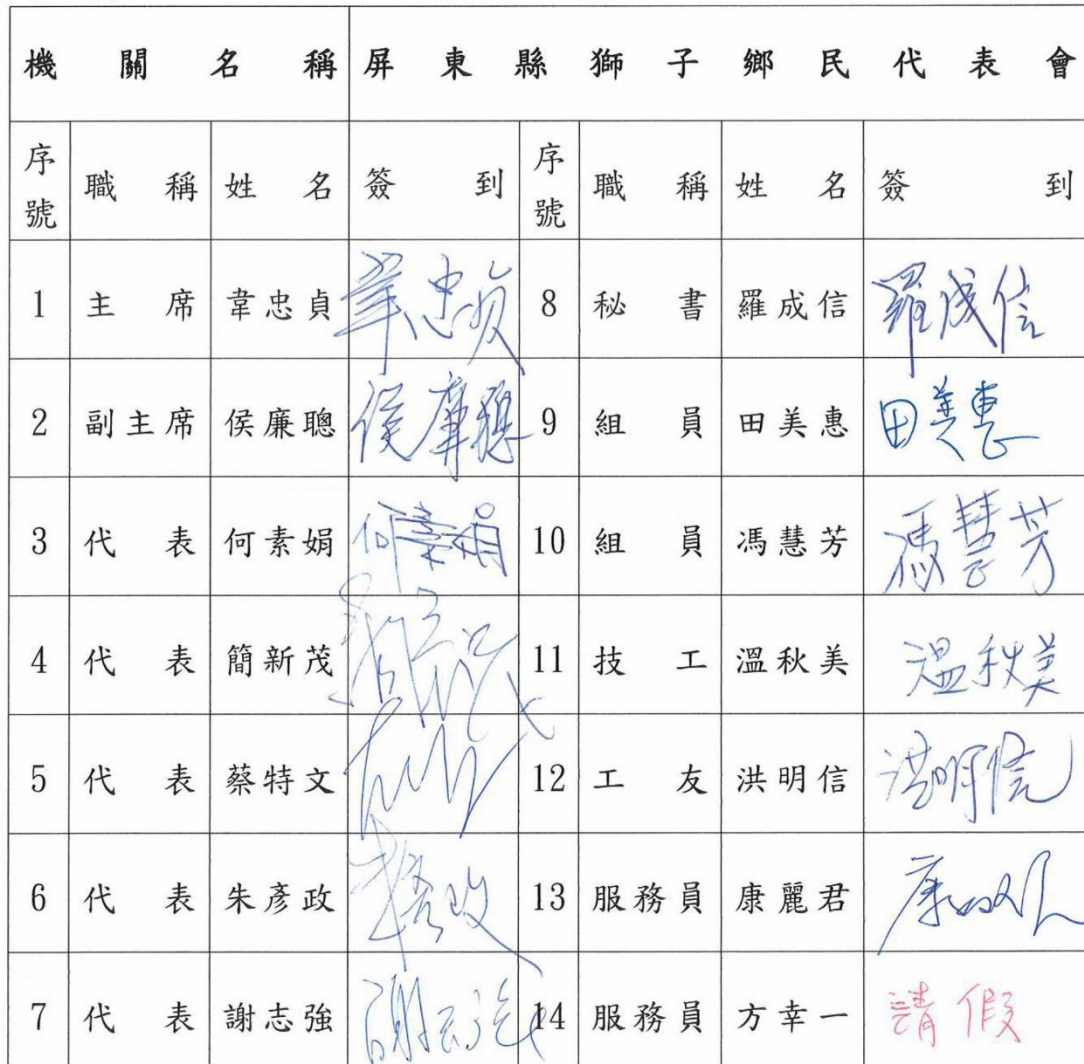 機關名稱 屏東縣獅子鄉民代表會
序號 職稱 姓名 簽到 序號 職稱 姓名 簽到
1 主席 韋忠貞 韋忠貞 8 秘書 羅成信 羅成信
2 副主席 侯廉聰 侯廉聰 9 組員 田美惠 田美惠
3 代表 何素娟 何素娟 10 組員 馮慧芳 馮慧芳
4 代表 簡新茂 11 技工 溫秋美 溫秋美
5 代表 蔡特文 12 工友 洪明信 洪明信
6 代表 朱彥政 朱彥政 13 服務員 康麗君 康麗君
7 代表 謝志強 謝志強 14 服務員 方幸一 請假